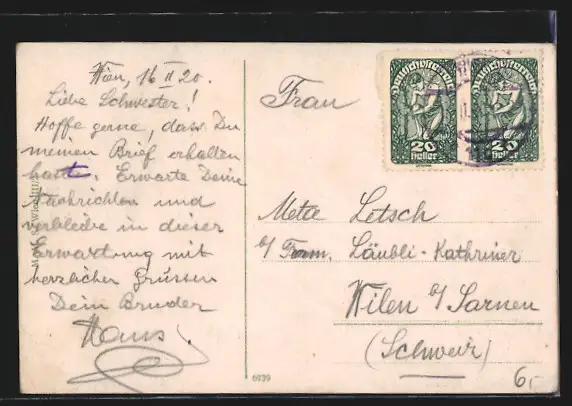 Wien, 16 II 20.
Liebe Schwester!
Hoffe gerne, dass Du
meinen Brief erhalten
hast. Erwarte Deine
Nachrichten und
verbleibe in dieser
Erwartung mit
herzlichen Grüssen
Dein Bruder
Hans.
Frau
Deutschösterreich
20
Heller
Deutschösterreich
20
Heller
Meta Letsch
b/ Fam. Läubli-Kathriner
Wilen b/ Sarnen
(Schweiz)
6939
6,-